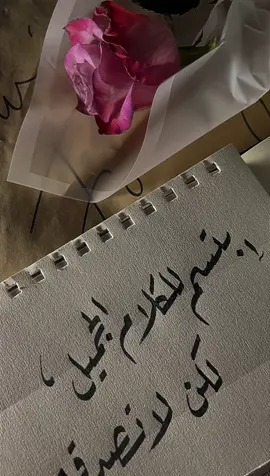 ابتسم للكلام الجميل ،
لكن لا تصدق